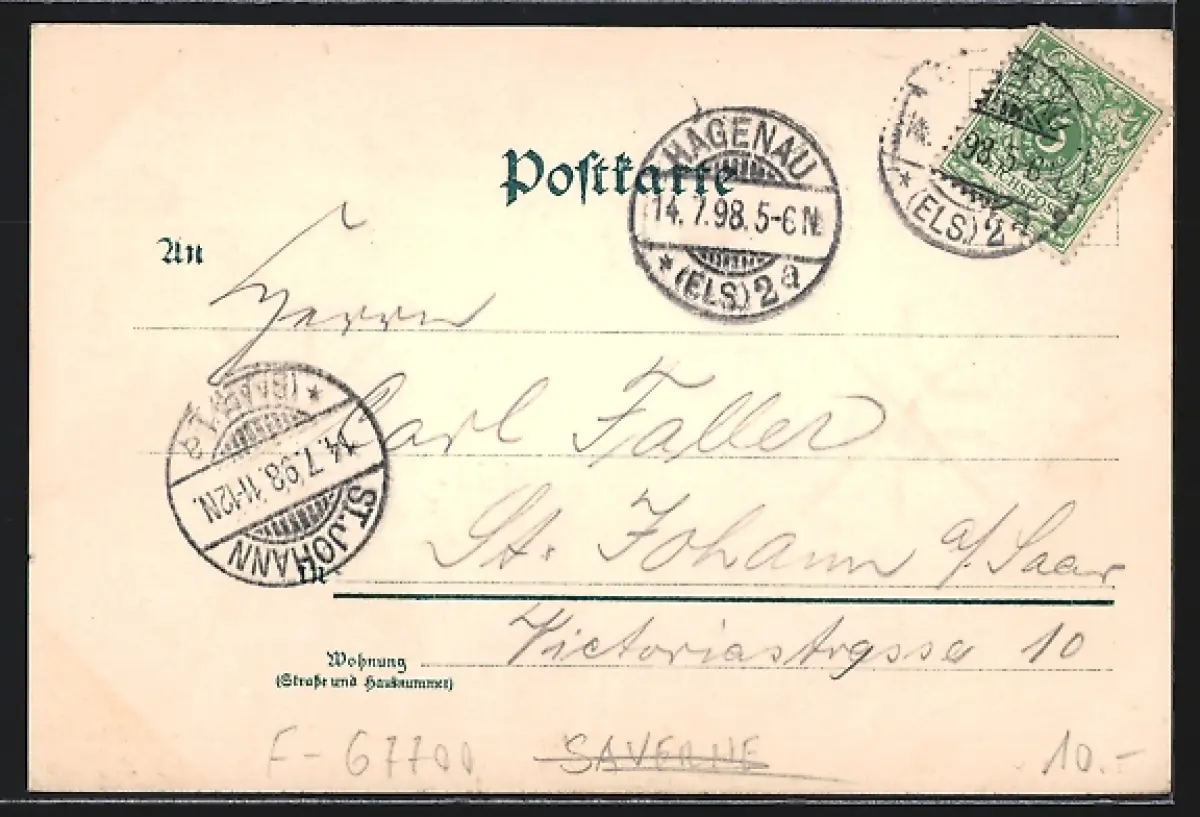 Postkarte
HAGENAU
14.7.98.5-6N.
* (ELS.) 2 a
98.5-6N.
* (ELS.) 2 a
REICHSPOST
An
Herrn
Carl Faller
St. Johann a/Saar
Victoriastrasse 10
ST. JOHANN
14.7.98.11-12N.
* (SAAR) 1 a
Wohnung
(Straße und Hausnummer)
F-67700 SAVERNE 10.-